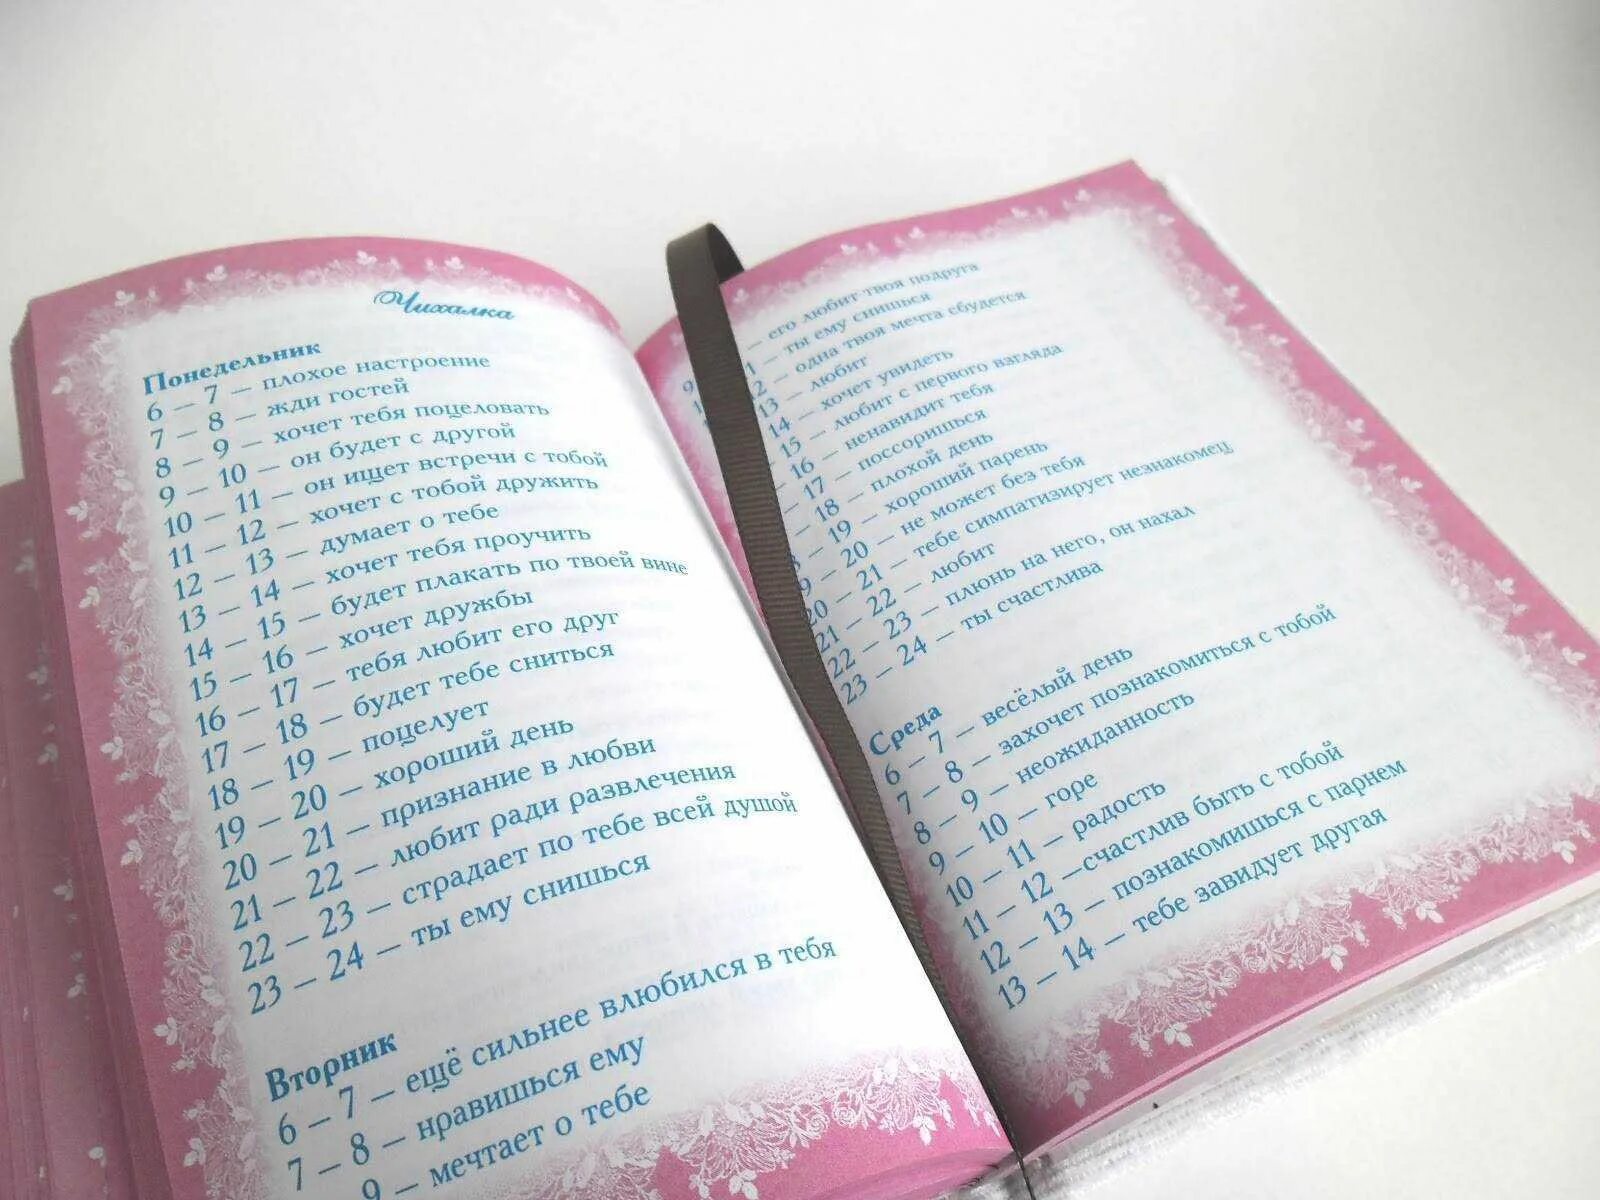 Чихалка
Понедельник
6 – 7 – плохое настроение
7 – 8 – жди гостей
8 – 9 – хочет тебя поцеловать
9 – 10 – он будет с другой
10 – 11 – он ищет встречи с тобой
11 – 12 – хочет с тобой дружить
12 – 13 – думает о тебе
13 – 14 – хочет тебя проучить
14 – 15 – будет плакать по твоей вине
15 – 16 – хочет дружбы
16 – 17 – тебя любит его друг
17 – 18 – будет тебе сниться
18 – 19 – поцелует
19 – 20 – хороший день
20 – 21 – признание в любви
21 – 22 – любит ради развлечения
22 – 23 – страдает по тебе всей душой
23 – 24 – ты ему снишься
Вторник
6 – 7 – ещё сильнее влюбился в тебя
7 – 8 – нравишься ему
9 – мечтает о тебе
– его любит твоя подруга
1 – ты ему снишься
2 – одна твоя мечта сбудется
13 – любит
14 – хочет увидеть
15 – любит с первого взгляда
16 – ненавидит тебя
17 – поссоришься
18 – плохой день
19 – хороший парень
9 – 20 – не может без тебя
20 – 21 – тебе симпатизирует незнакомец
21 – 22 – любит
22 – 23 – плюнь на него, он нахал
23 – 24 – ты счастлива
Среда
6 – 7 – весёлый день
7 – 8 – захочет познакомиться с тобой
8 – 9 – неожиданность
9 – 10 – горе
10 – 11 – радость
11 – 12 –счастлив быть с тобой
12 – 13 – познакомишься с парнем
13 – 14 – тебе завидует другая